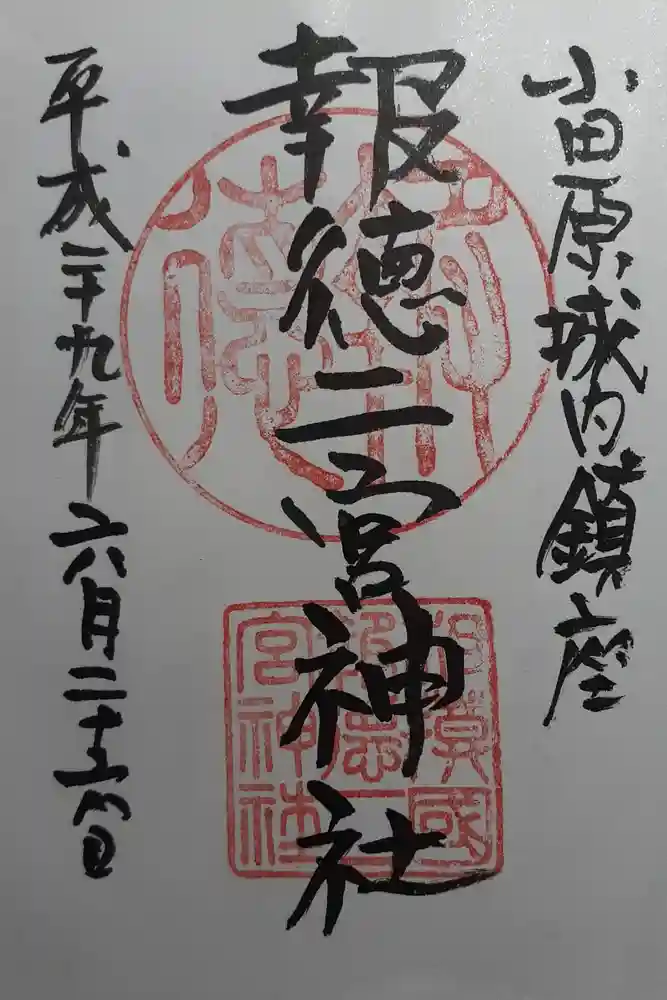 小田原城内鎮座
報徳二宮神社
平成二十九年六月二十六日
報徳
相模國
報徳二
宮神社